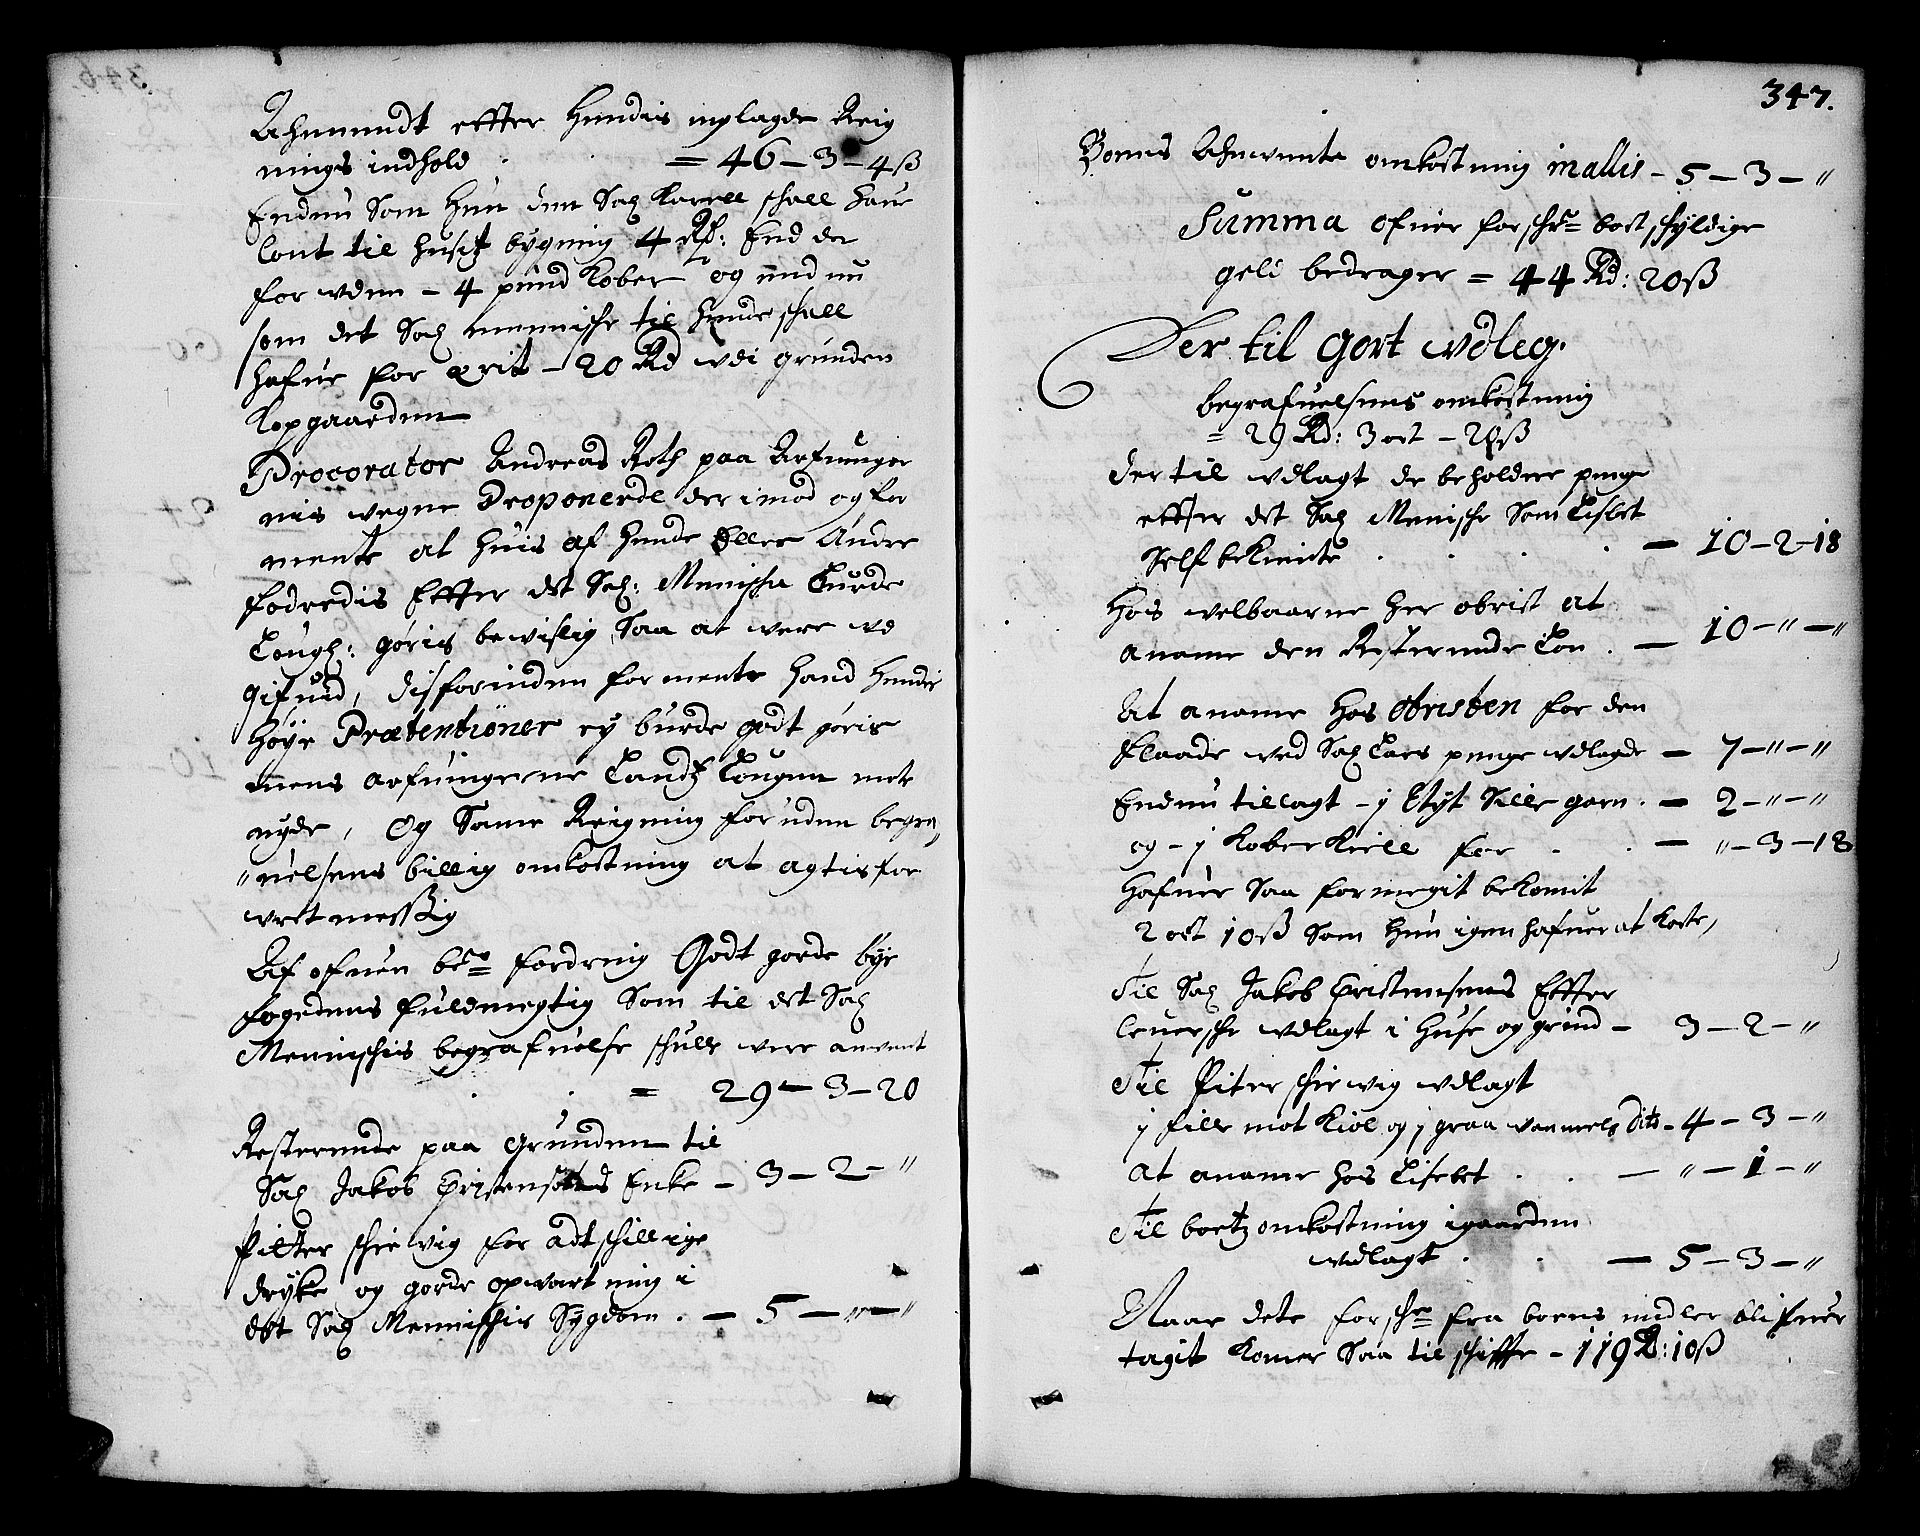 Ahnuendt effter hendis inglagde Reig
nings indhold = 46 - 3 - 4ß
Endnu Som hun den Sal Karell schall haue
lont til husits bygning 4 Rd: End der
for uden - 4 pund Kober og end nu
som det Sal menische til hende schall
hafue for ærit - 20 Rd udi grunden
Kopgaarden
Procorator Andreas Roth paa Arfuinger
nis vegne Proponerde der imod og for
mente at huis af hende Eller Andre
fodredis Effter det Sal: Menische burde
Lougl: gøris bevislig, Saa at vere ud
gifued, disforinden for mente hand hendis
høye Prætentiöner ey burde godt gøris
mens arfuingerne Landtz Lougen mote
nyde, Og Same Reigning foruden begra
"uelsens billig omkostning at agtis for
uretmessig
Af ofuen be:te fordring Godt gorde bye
fogedens fuldmegtig Som til det Sal
Mennischis begrafuelse schulle vere anvent
= 29 - 3 - 20
Resterende paa Grunden til
Sal Jakob Christensøns Enke - 3 - 2 - "
Pitter schrevig for adtschillige
dryke og gorde opvartning i
det Sal Mennischis Sygdom . - 5 - " - "
347.
Boens Ahnvente omkostning in allis - 5 - 3 - "
Summa ofuer forschr:ne bort schyldige
geld bedrager = 44 Rd: 20ß
Der til gort udleg.
begrafuelsens omkostning
= 29 Rd: 3 ort - 20ß
der til udlagt de beholdne penge
effter det Sal Menische Som Lisbet
Self bekiente - 10 - 2 - 18
Hos velbaarne her obrist at
aname den Resterende Lon . - 10 - " - "
At aname hos Christen for den
Flaade ved Sal Lars penge udlagde - 7 - " - "
Endnu tillagt - j Styt Sille garn . - 2 - " - "
og - j Kober Kiell for - " - 3 - 18
hafuer Saa formegit bekomit
2 ort 10ß Som hun igen hafuer at Kore,
Til Sal Jakob Christensens Effter
leuersche udlagt i huse og grund - 3 - 2 - "
Til Piter schrevig udlagt
j fille mot Kiol og j graa vanmels dito - 4 - 3 - "
at aname hos Lisebet . . - " - 1 - "
Til boetz omkostning igaarden
udlagt . - 5 - 3 - "
Naar dete forschr:ne fra boens midler blifuer
tagit Komer Saa til schiffte - 119 Rd: 10ß